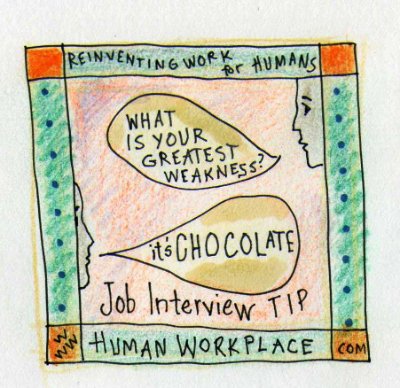 REINVENTING WORK for HUMANS
WHAT
IS YOUR
GREATEST
WEAKNESS?
it's CHOCOLATE
Job Interview TIP
WWW HUMAN WORKPLACE COM